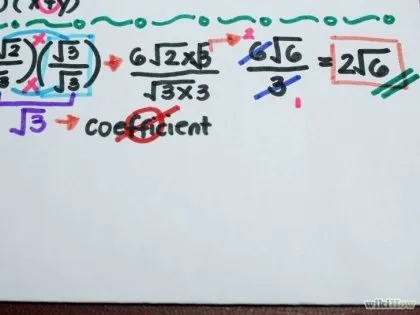 )(x+y)
√2/√3)(√3/√3) → 6√2×3/√3×3 → 6√6/3 = 2√6
√3 → coefficient
wikiHow